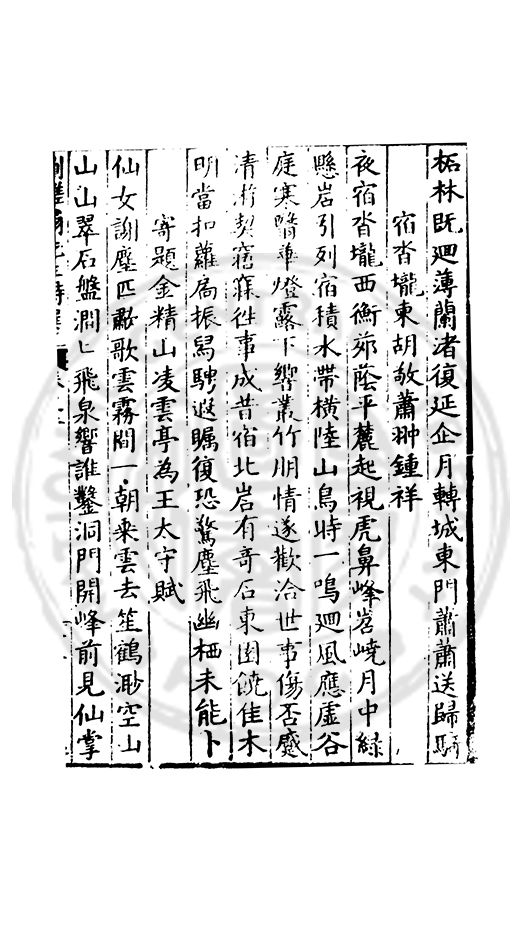 柘林既廻薄蘭渚復延企月轉城東門蕭蕭送歸騎
宿沓壠東胡敬蕭翀鍾祥
夜宿沓壠西衡茆蔭平麓起視虎鼻峰岧嶢月中緑
懸岩引列宿積水帶橫陸山鳥時一鳴廻風應虛谷
庭寒翳華燈露下響叢竹朋情遂歡洽世事傷否蹙
清游契寤寐徃事成昔宿北岩有奇石東園饒佳木
明當扣蘿扃振舄騁遐矚復恐驚塵飛幽栖未能卜
寄題金精山凌雲亭為王太守賦
仙女謝塵匹嘯歌雲霧間一朝乘雲去笙鶴渺空山
山山翠石盤澗匕飛泉響誰鑿洞門開峰前見仙掌